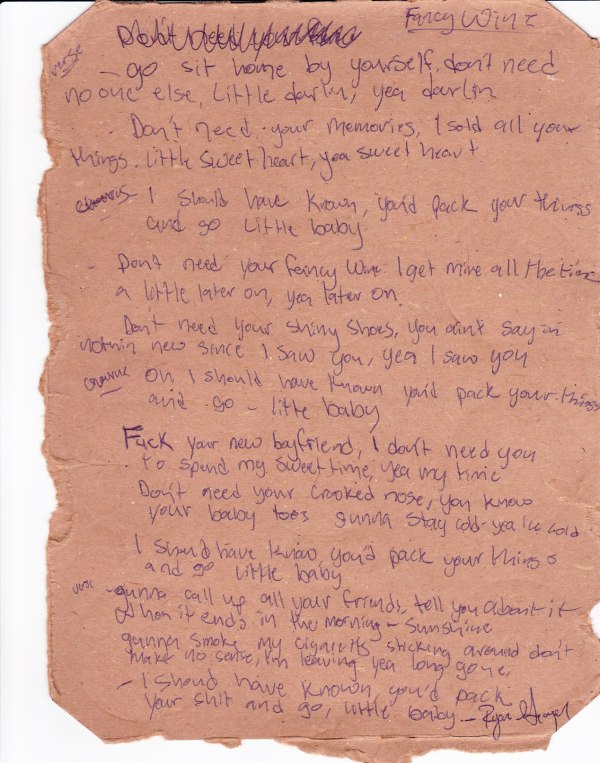 Fancy Wine
verse
- go sit home by yourself, don't need
no one else, Little darlin, yea darlin
- Don't need your memories, I sold all your
things. Little sweet heart, yea sweet heart
chorus I should have known, you'd pack your things
and go Little baby
- Don't need your fancy wine I get mine all the time
a little later on, yea later on.
Don't need your shiny shoes, you aint say in
nothin new since I saw you, yea I saw you
Oh I should have known you'd pack your things
and go - little baby
Fuck your new boyfriend, I don't need you
to spend my sweet time, yea my time
Don't need your crooked nose, you know
your baby toes gunna stay cold - yea ice cold
I should have know you'd pack your things
and go little baby
verse - gunna call up all your friends, tell you about it
when it ends, in the morning - sunshine
gunna smoke my cigaretts sticking around don't
make no sense, I'm leaving yea long gone,
- I should have known, you'd pack
your shit and go, little baby - Ryan